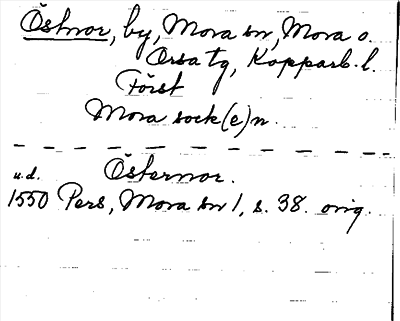 Östnor, by, Mora sn, Mora o.
Orsa tg, Kopparb. l.
Först
Mora sock(e)n.
Östernor.
u.d.
1550 Pers, Mora sn 1, s. 38. orig.